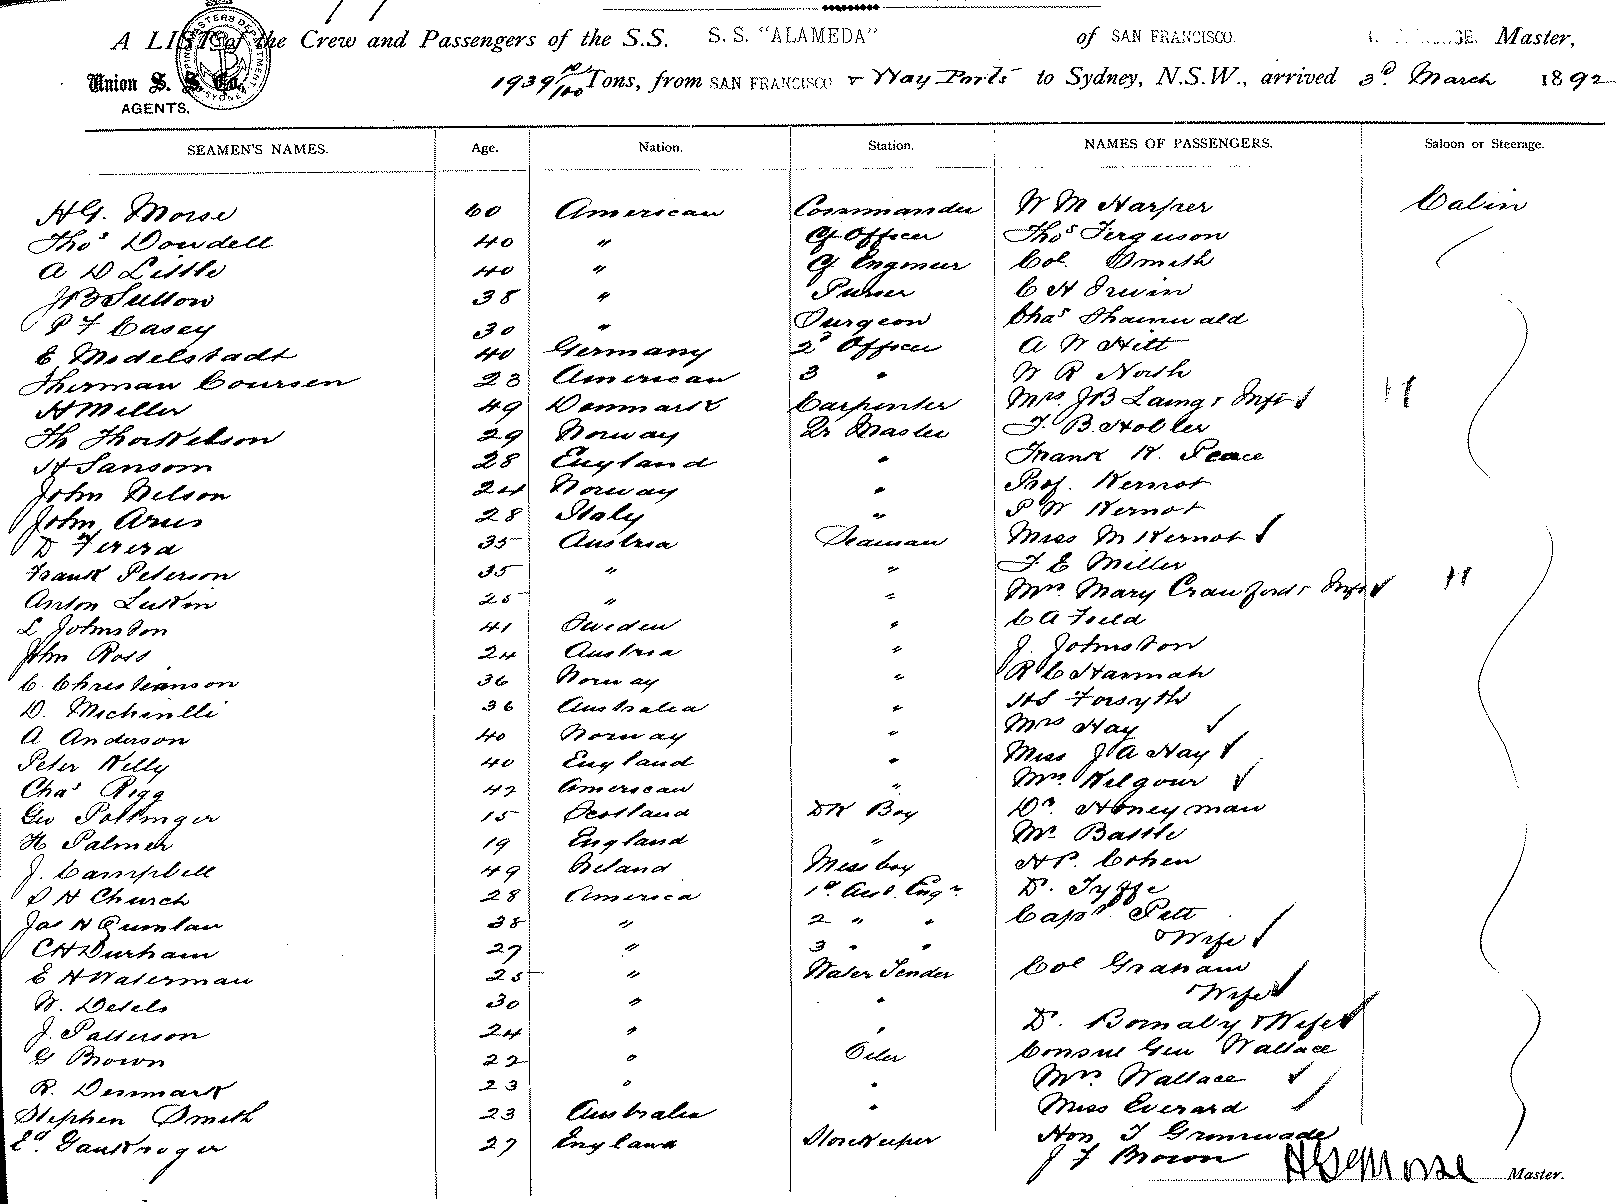 A LIST of the Crew and Passengers of the S.S. S. S. "ALAMEDA" of SAN FRANCISCO. Master,
Union S. S. Co. 1939 Tons, from SAN FRANCISCO & Way Ports to Sydney, N.S.W., arrived 3d March 1892
AGENTS.
SEAMEN'S NAMES. Age. Nation. Station. NAMES OF PASSENGERS. Saloon or Steerage.
HG. Morse 60 American Commander W M Harper Cabin
Thos Dowdell 40 " Cf Officer Thos Ferguson
A D Little 40 " Cf Engineer Col. Smith
JB Sutton 38 " Purser C H Irwin
P F Casey 30 " Surgeon Chas Thainwald
E Medelstadt 40 Germany 2d Officer A W Hitt
Sherman Coursen 23 American 3 " W R North
H Miller 49 Denmark Carpenter Mrs. JB Laing & Inft
Th Thorkelson 29 Norway Qr Master F. B. Hobler
H Sansom 28 England " Frank K. Peace
John Nelson 24 Norway " Prof. Kernot
John Arus 28 Italy " P W Kernot
D Fererd 35 Austria Seaman Miss M Kernot
Frank Peterson 35 " " F E Miller
Anton Luskin 25 " " Mrs. Mary Crawford & Inft
L Johnston 41 Sweden " C A Field
John Ross 24 Austria " J. Johnston
C. Christianson 36 Norway " R C Hannah
D. Michinlli 36 Australia " HS Forsyth
A Anderson 40 Norway " Mrs Hay
Peter Kelly 40 England " Miss J A Hay
Chas Rigg 42 American " Mrs. Kilgour
Geo Pottinger 15 Scotland DK Boy Dr. Honeyman
H Palmer 19 England " Mr. Battle
J. Campbell 49 Ireland Mess boy HP. Cohen
S H Church 28 America 1st Asst. Engr. D. Fyffe
Jas H Quinlan 38 " 2 " " Capt. Pitt
& Wife
CH Durham 27 " 3 " "
E H Waterman 25 " Water Tender Col Graham
& Wife
W. Detels 30 " "
J. Patterson 24 " " D. Bornaby & Wife
G Brown 22 " Oiler Consul Gen Wallace
R. Denmark 23 " " Mrs. Wallace
Stephen Smith 23 Australia " Miss Everard
Ed. Gaukroger 27 England Storekeeper Hon F Grimwade
J F Brown
HG Morse Master.